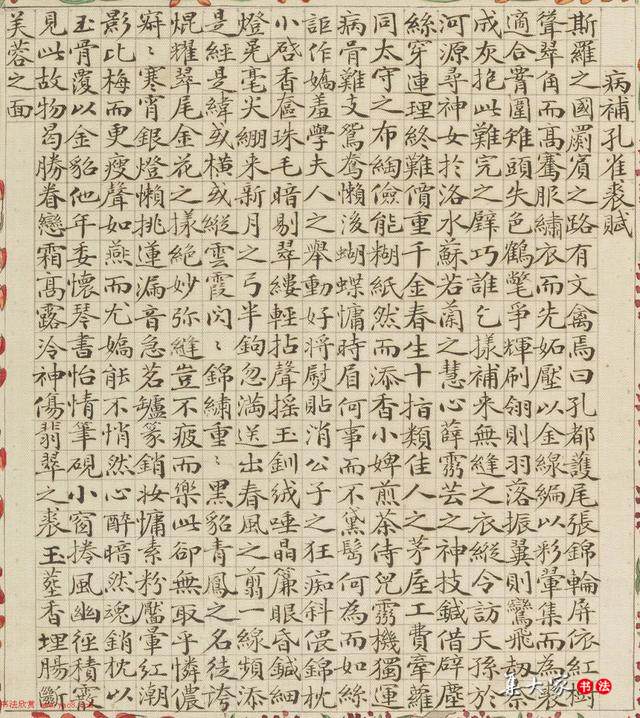 病補孔雀裘賦
斯羅之國罽賓之路有文禽焉曰孔都護尾張錦輪屏依紅樹
聳翠角而高騫服繡衣而先妬壓以金線編以彩翬集而為裘
適合臂圍雉頭失色鶴氅爭輝刷翎則羽落振翼則鸞飛劫奈
成灰抱此難完之璧巧誰乞樣補來無縫之衣縱令訪天孫於
河源尋神女於洛水蘇若蘭之慧心薛靈芸之神技鍼借辟塵
絲穿連理終難價重千金春生十指類佳人之茅屋工費牽蘿
同太守之布綯儉能糊紙然而添香小婢煎茶侍兒靈機獨運
病骨難支鴛鴦懶後蝴蝶慵時眉何事而不黛髩何為而如絲
詎作嬌羞學夫人之舉動好將熨貼消公子之狂痴斜偎錦枕
小啓香奩珠毛暗剔翠縷輕拈聲搖玉釧絨唾晶簾眼昏鍼細
燈晃毫尖綳來新月之弓半鉤忽滿送出春風之剪一線頻添
是經是緯或橫或縱雲霞閃〻錦繡重〻黑貂青鳳之名徒誇
焜耀翠尾金花之樣絕妙彌縫豈不疲而樂此卻無取乎憐儂
寒宵銀燈懶挑蓮漏音急茗罏篆銷妝慵素粉靨暈紅潮
影比梅而更瘦聲如燕而尤嬌能不悄然心醉暗然魂銷枕以
玉骨覆以金貂他年委懷琴書怡情筆硯小窗捲風幽徑積霰
見此故物曷勝眷戀霜高露冷神傷翡翠之裘玉蕋香埋腸斷
芙蓉之面
集大家 书法
书法欣赏